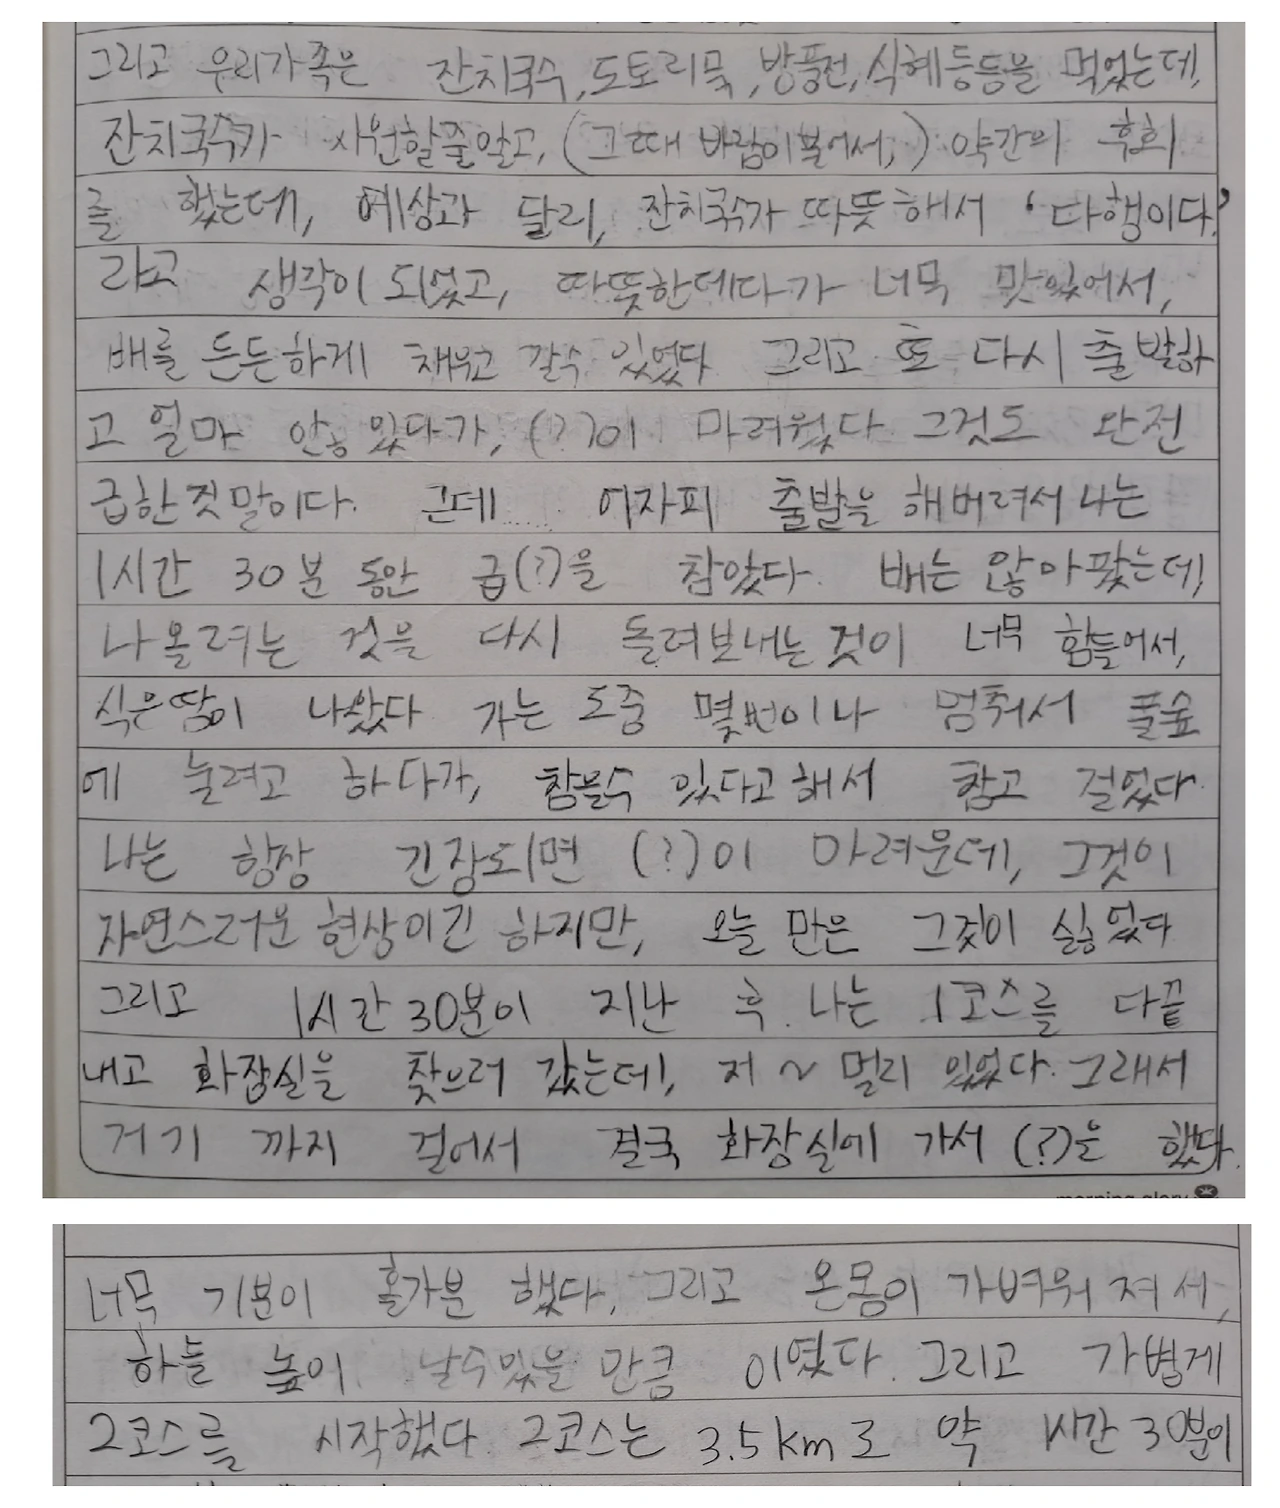 그리고 우리가족은 잔치국수,도토리묵,방풍전,식혜등등을 먹었는데,
잔치국수가 시원할줄알고, (그때 바람이불어서,) 약간의 후회
를 했는데, 예상과 달리, 잔치국수가 따뜻해서 '다행이다.'
라고 생각이 되었고, 따뜻한데다가 너무 맛있어서,
배를 든든하게 채우고 갈수 있었다 그리고 또 다시 출발하
고 얼마 안 있다가, (?)이 마려웠다 그것도 완전
급한것말이다. 근데 어자피 출발을 해버려서 나는
1시간 30분 동안 급(?)을 참았다. 배는 않아팢는데,
나올려는 것을 다시 돌려보내는 것이 너무 힘들어서,
식은땀이 나왔다 가는 도중 몇번이나 멈춰서 풀숲
에 눌려고 하다가, 참을수 있다고해서 참고 걸었다
나는 항상 긴장되면 (?)이 마려운데, 그것이
자연스러운 현상이긴 하지만, 오늘 만은 그것이 싫었다
그리고 1시간 30분이 지난 후 나는 1코스를 다끝
내고 화장실을 찾으러 갔는데, 저 ~ 멀리 있었다. 그래서
거기 까지 걸어서 결국 화장실에 가서 (?)을 했다.
morning glory
너무 기분이 홀가분 했다, 그리고 온몸이 가벼워 져 서,
하늘 높이 날수있을 만큼 이였다 그리고 가볍게
2코스를 시작했다 2코스는 3.5km로 약 1시간 30분이